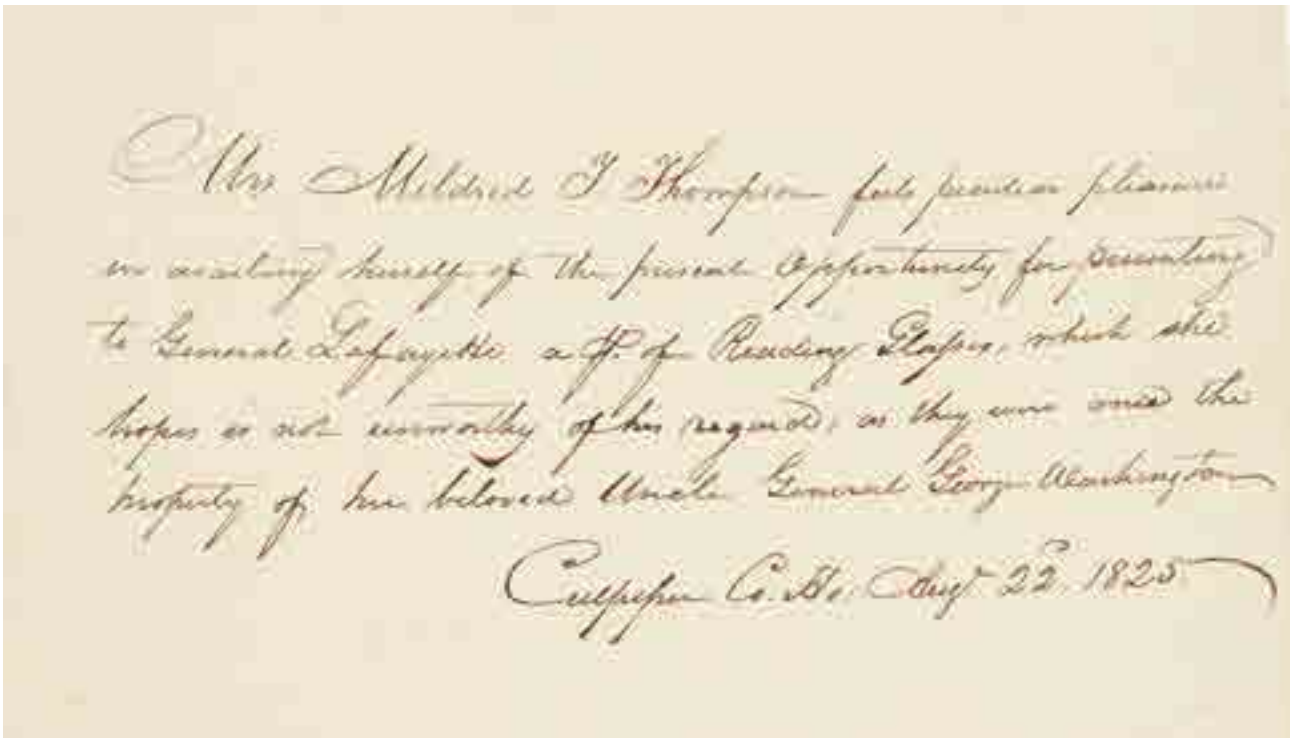 Mrs Mildred T Thompson feels peculiar pleasure
in availing herself of the present opportunity for presenting
to General Lafayette a pr. of Reading Glasses, which she
hopes is not unworthy of his regard, as they were once the
property of her beloved Uncle General George Washington
Culpeper Co. Ho. Augt 22d. 1825